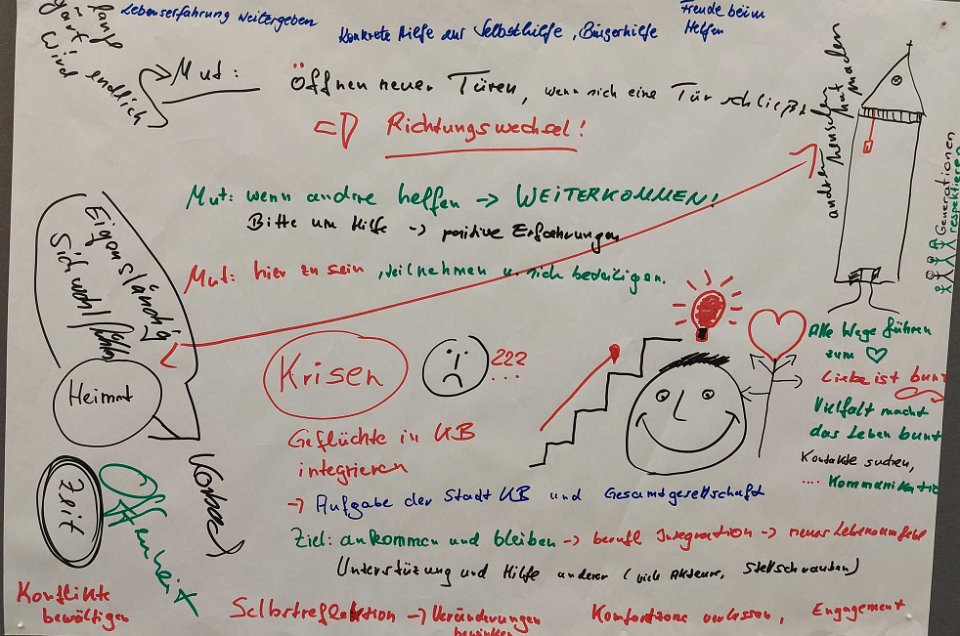 Lebenserfahrung weitergeben
Konkrete Hilfe aus Selbsthilfe, Bürgerhilfe
Freude beim
Helfen
lange
gut
wird
endlich
Mut:
Öffnen neuer Türen, wenn sich eine Tür schließt
Richtungswechsel!
anderen
Menschen
Mut machen
Generationen
respektieren
Mut: wenn andere helfen → WEITERKOMMEN!
Bitte um Hilfe → positive Erfahrungen
Mut: hier zu sein, teilnehmen u. sich beteiligen.
Eigenständig
Sich wohl fühlen
Heimat
Krisen
???
...
Geflüchte in KB
integrieren
→ Aufgabe der Stadt KB und Gesamtgesellschaft
Ziel: ankommen und bleiben → berufl. Integration → neues Lebensumfeld
Unterstüzung und Hilfe anderer (viele Akteure, Stellschrauben)
Alle Wege führen
zum ♡
Liebe ist bunt
Vielfalt macht
das Leben bunt
Kontakte suchen,
.... Kommunikation
Zeit
Offenheit
Konflikte
bewältigen
Selbstreflektion → Veränderungen
bewirken
Komfortzone verlassen, Engagement